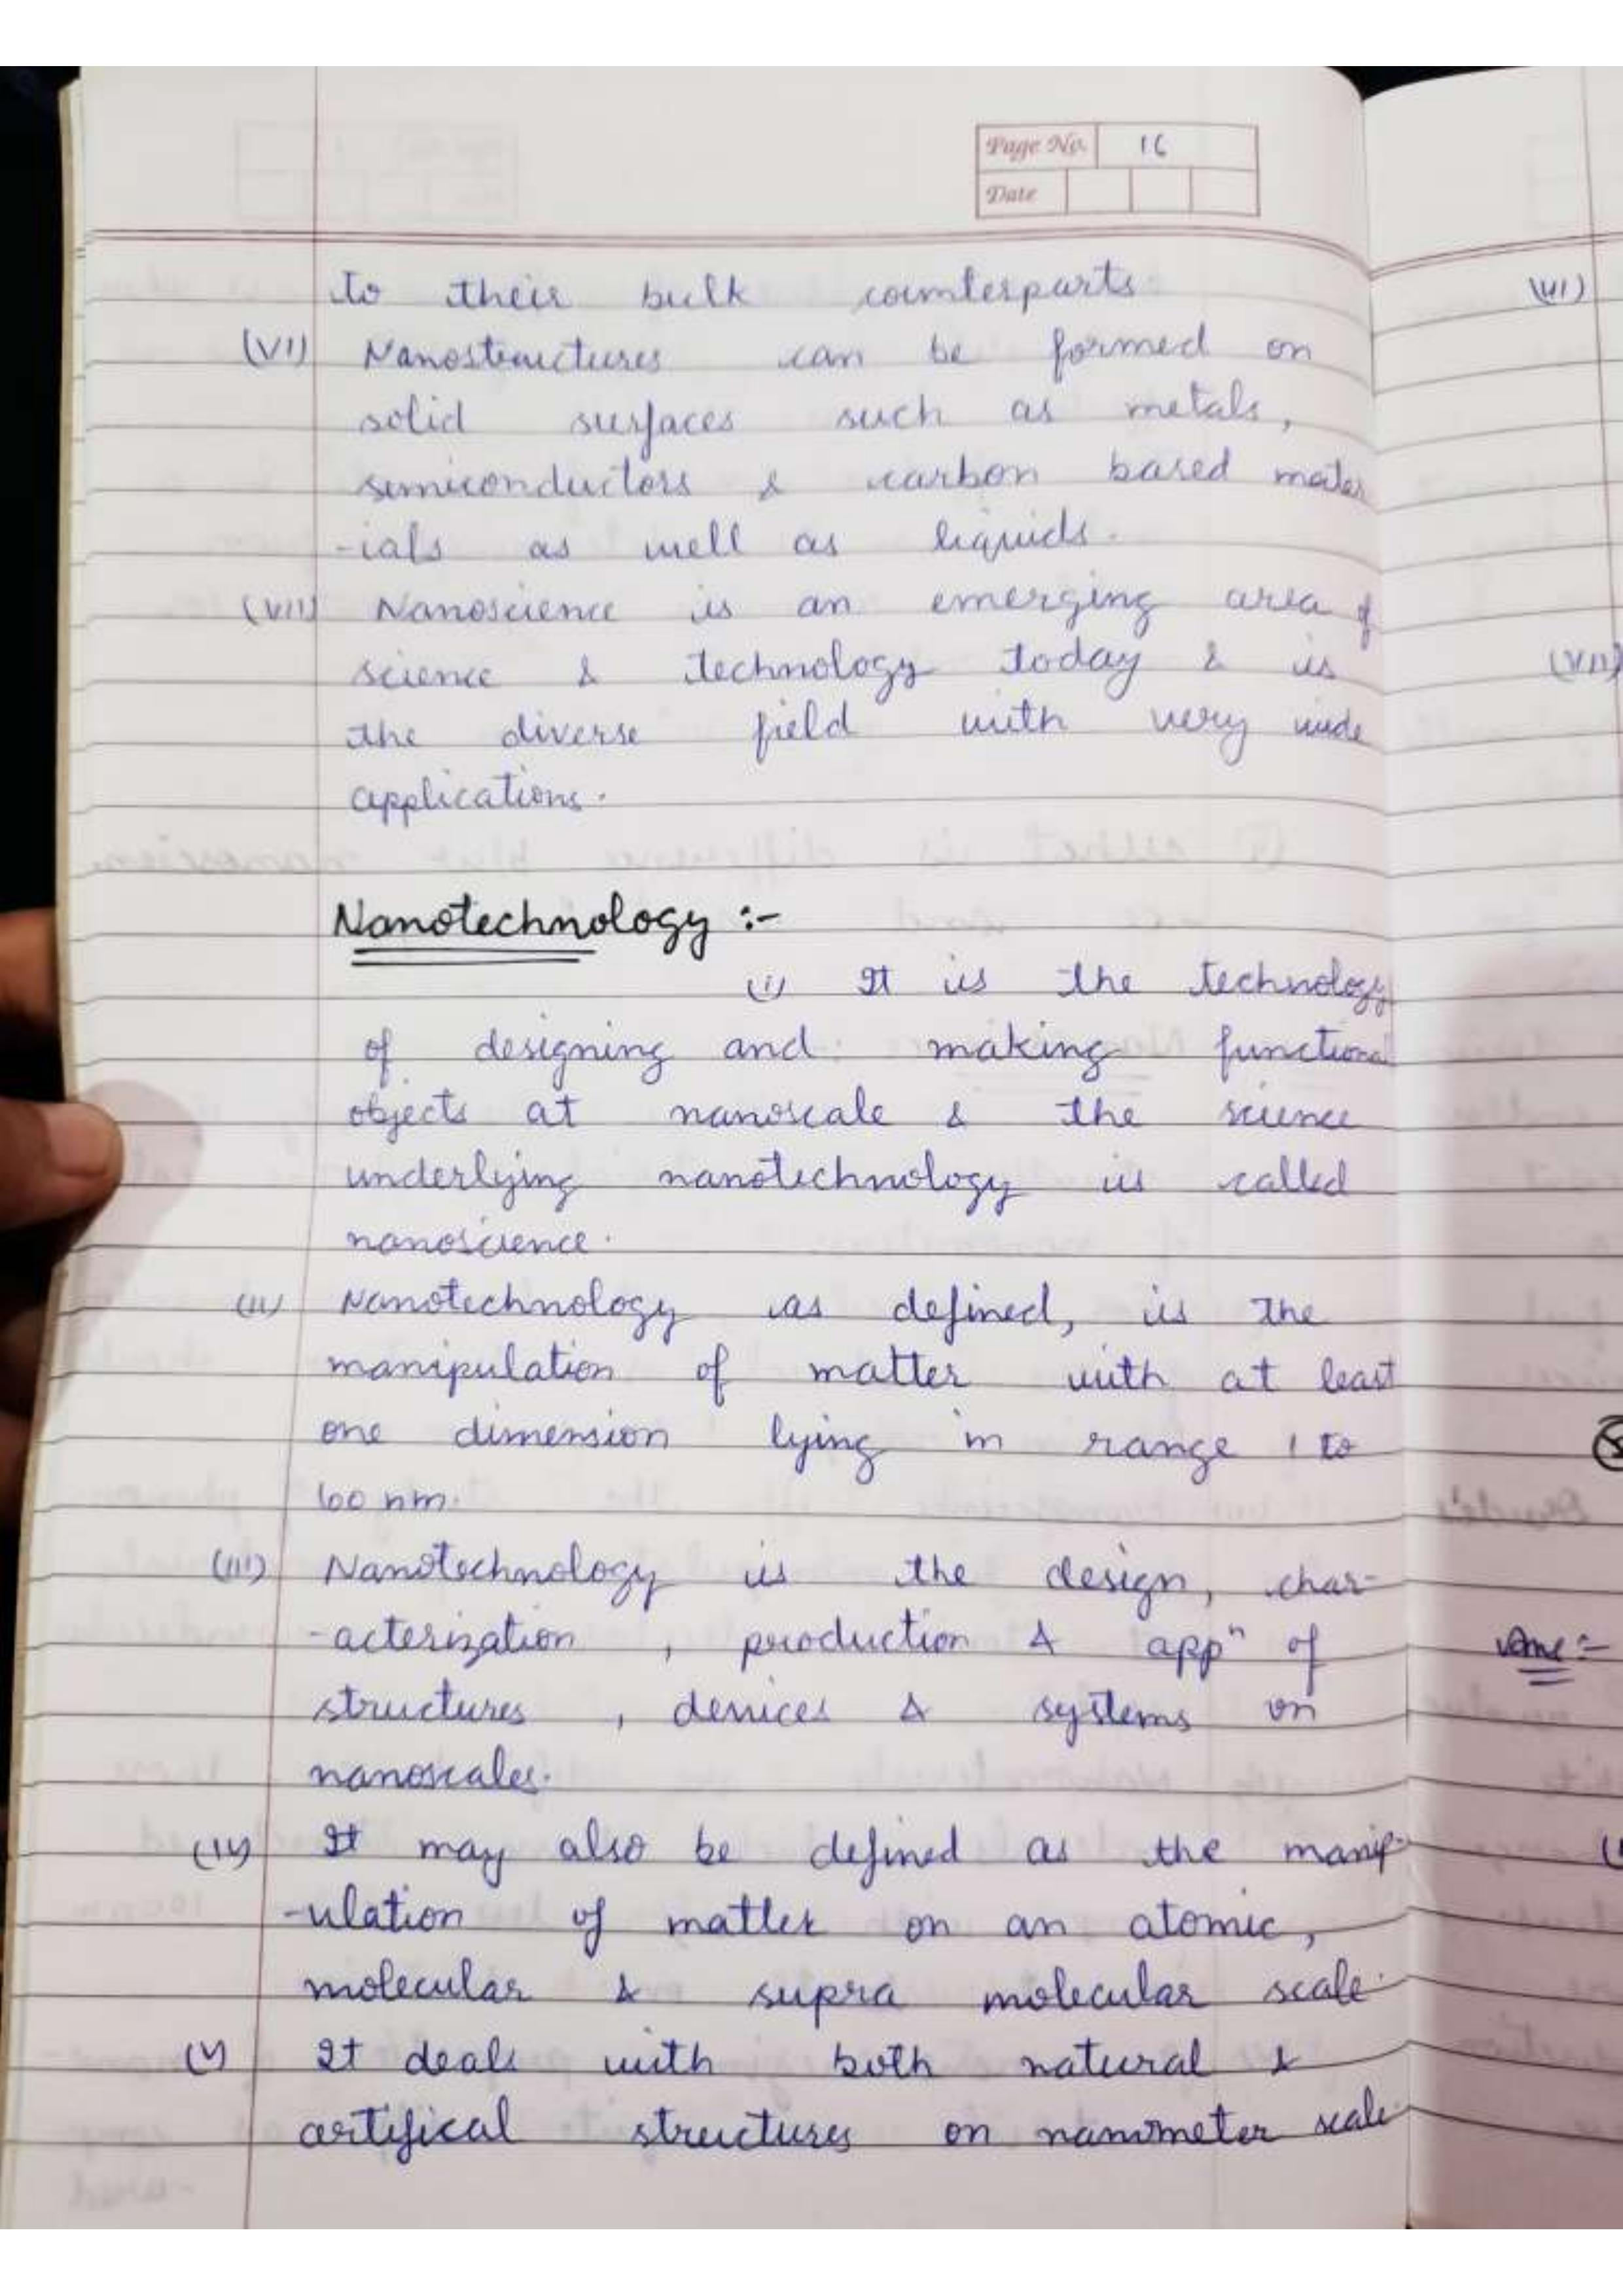 Page No. 16
Date
to their bulk counterparts.
(VI) Nanostructures can be formed on
solid surfaces such as metals,
semiconductors & carbon based mater
-ials as well as liquids.
(VII) Nanoscience is an emerging area of
science & technology today & is
the diverse field with very wide
applications.
Nanotechnology :-
(i) It is the technology
of designing and making functional
objects at nanoscale & the science
underlying nanotechnology is called
nanoscience.
(ii) Nanotechnology as defined, is the
manipulation of matter with at least
one dimension lying in range 1 to
100 nm.
(iii) Nanotechnology is the design, char-
-acterization, production & appⁿ of
structures, devices & systems on
nanoscales.
(iv) It may also be defined as the manip-
-ulation of matter on an atomic,
molecular & supra molecular scale.
(v) It deals with both natural &
artifical structures on nanometer scale.
(VI)
(VII)
Ans :-